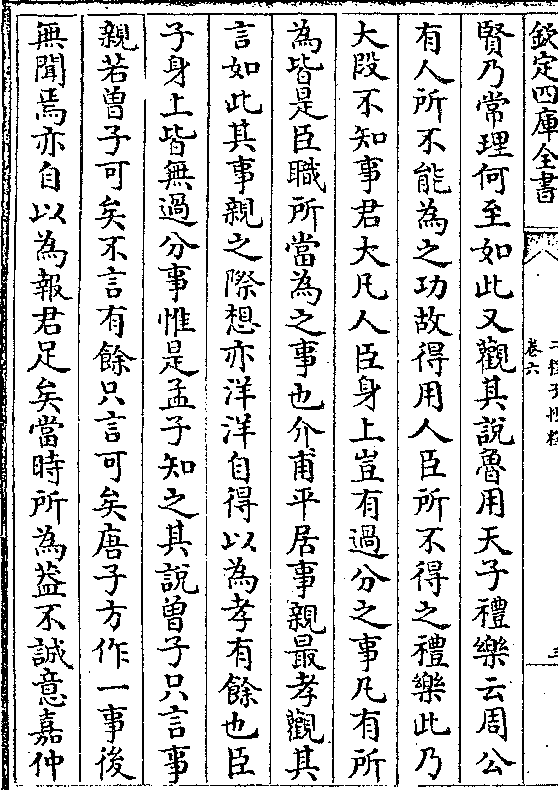 欽定四庫全書
卷六
賢乃常理何至如此又觀其說魯用天子禮樂云周公
有人所不能為之功故得用人臣所不得之禮樂此乃
大段不知事君大凡人臣身上豈有過分之事凡有所
為皆是臣職所當為之事也介甫平居事親最孝觀其
言如此其事親之際想亦洋洋自得以為孝有餘也臣
子身上皆無過分事惟是孟子知之其說曾子只言事
親若曽子可矣不言有餘只言可矣唐子方作一事後
無聞焉亦自以為報君足矣當時所為葢不誠意嘉仲